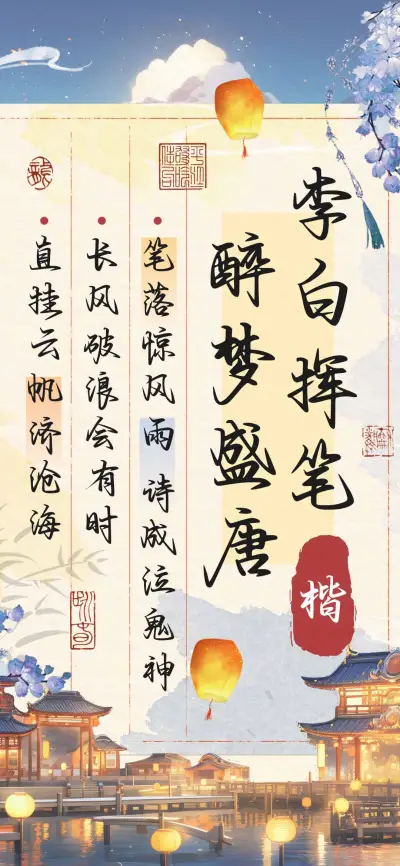 李白挥笔
醉梦盛唐
楷
笔落惊风雨 诗成泣鬼神
长风破浪会有时
直挂云帆济沧海